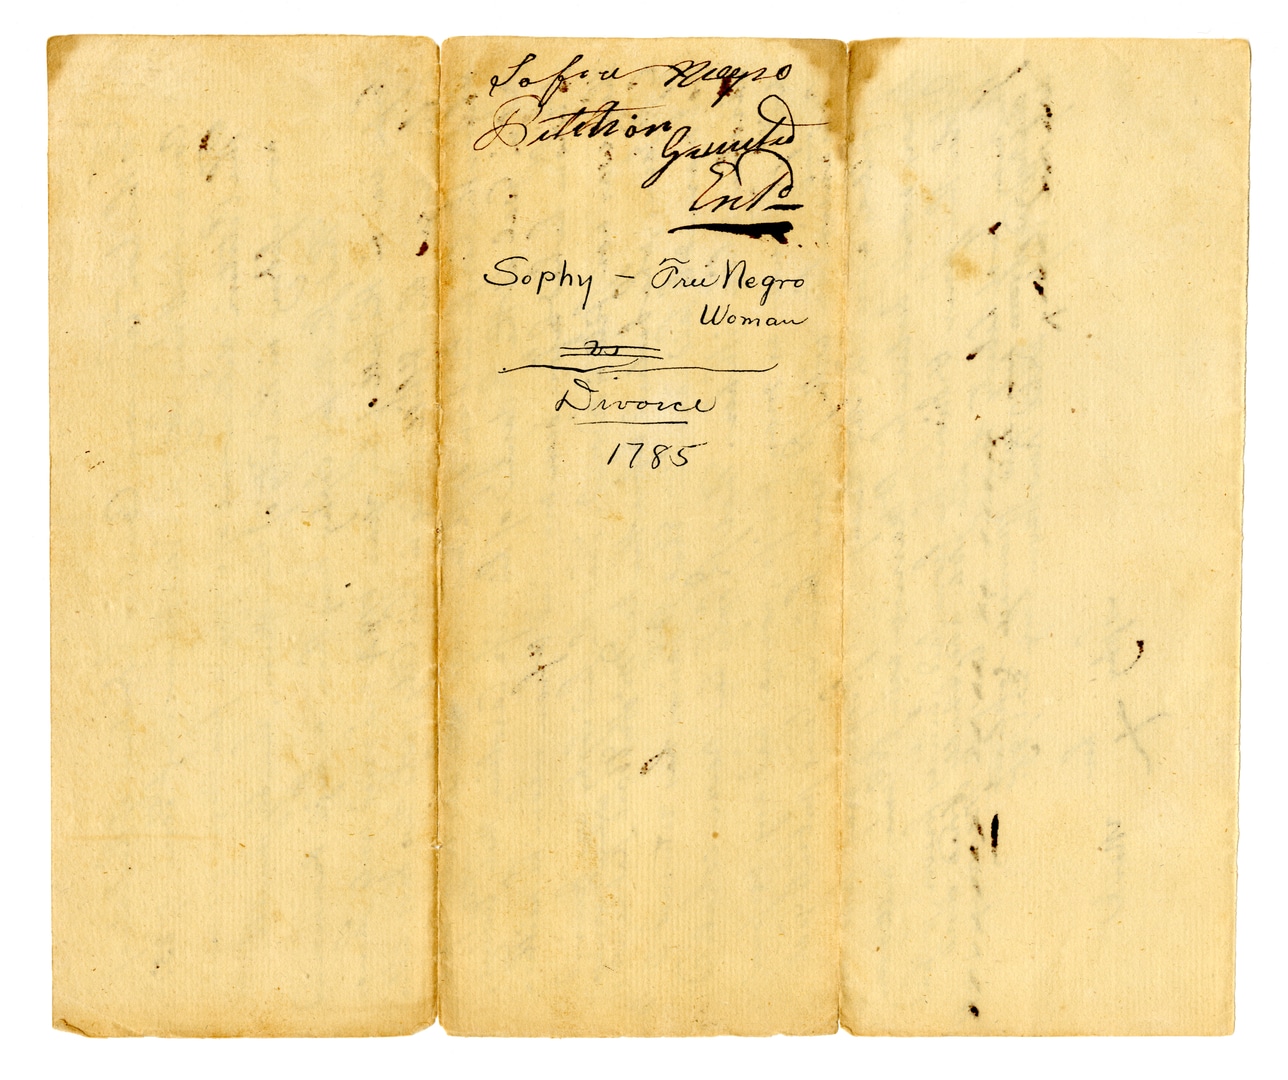 Sofia Negro
Petition
Granted
Ent^d
Sophy – Free Negro
Woman
vs
Divorce
1785